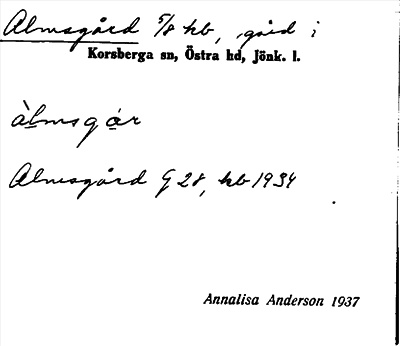 Almsgård 5/8 hb, gård i
Korsberga sn, Östra hd, Jönk. l.
àlmsgár
Almsgård G 28, hb 1934
Annalisa Anderson 1937